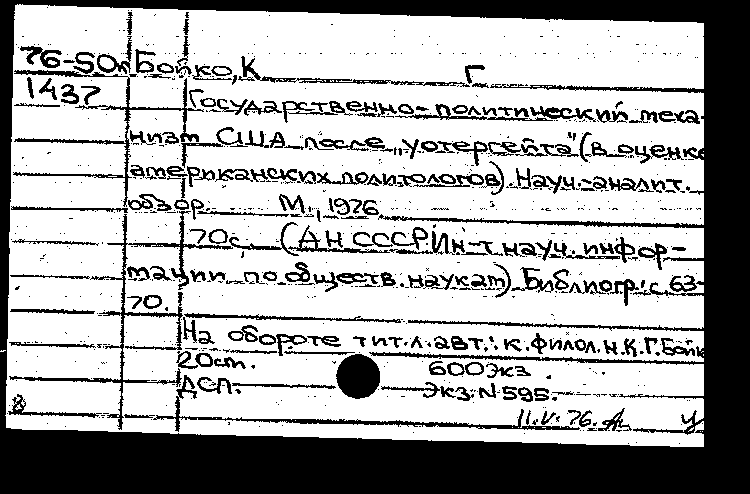 76-50л Бойко, К Г
1437 Государственно-политический меха-
низм США после „уотергейта" (в оценке
американских политологов). Науч.-аналит.
обзор. М., 1976
70с. (АН СССР. Ин-т науч. инфор-
мации по обществ. наукам). Библиогр.: с. 63-
70.
На обороте тит.л. авт.: к. филол. н. К.Г. Бойк
20см. 600экз.
ДСП. Экз. N 595.
8 11.V.76.